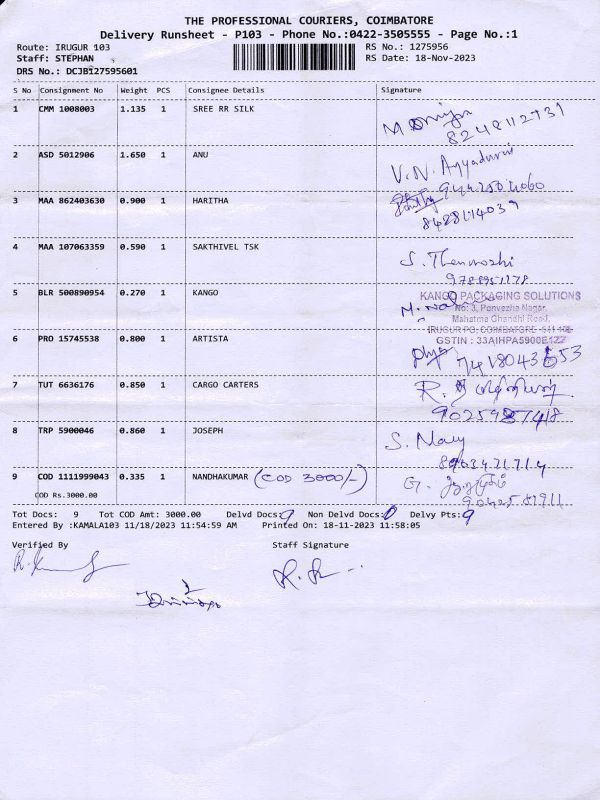 THE PROFESSIONAL COURIERS, COIMBATORE
Delivery Runsheet - P103 - Phone No.:0422-3505555 - Page No.:1
Route: IRUGUR 103
RS No.: 1275956
Staff: STEPHAN
RS Date: 18-Nov-2023
DRS No.: DCJB127595601
S No Consignment No Weight PCS Consignee Details Signature
1 CMM 1008003 1.135 1 SREE RR SILK
8248112731
2 ASD 5012906 1.650 1 ANU
V.N.
3 MAA 862403630 0.900 1 HARITHA
8428114039
4 MAA 107063359 0.590 1 SAKTHIVEL TSK
S. Thenmozhi
9788951178
5 BLR 500890954 0.270 1 KANGO
KANGO PACKAGING SOLUTIONS
No: 3, Panvezha Nagar,
Mahatma Ghandhi Road,
IRUGUR PO, COIMBATORE
GSTIN : 33AIHPA5900E1ZZ
6 PRO 15745538 0.800 1 ARTISTA
7 TUT 6636176 0.850 1 CARGO CARTERS
R.
8 TRP 5900046 0.860 1 JOSEPH
S. Mary
9 COD 1111999043 0.335 1 NANDHAKUMAR (COD 3000/-)
G.
COD Rs.3000.00
Tot Docs: 9 Tot COD Amt: 3000.00 Delvd Docs: 9 Non Delvd Docs: 0 Delvy Pts: 9
Entered By :KAMALA103 11/18/2023 11:54:59 AM Printed On: 18-11-2023 11:58:05
Verified By Staff Signature